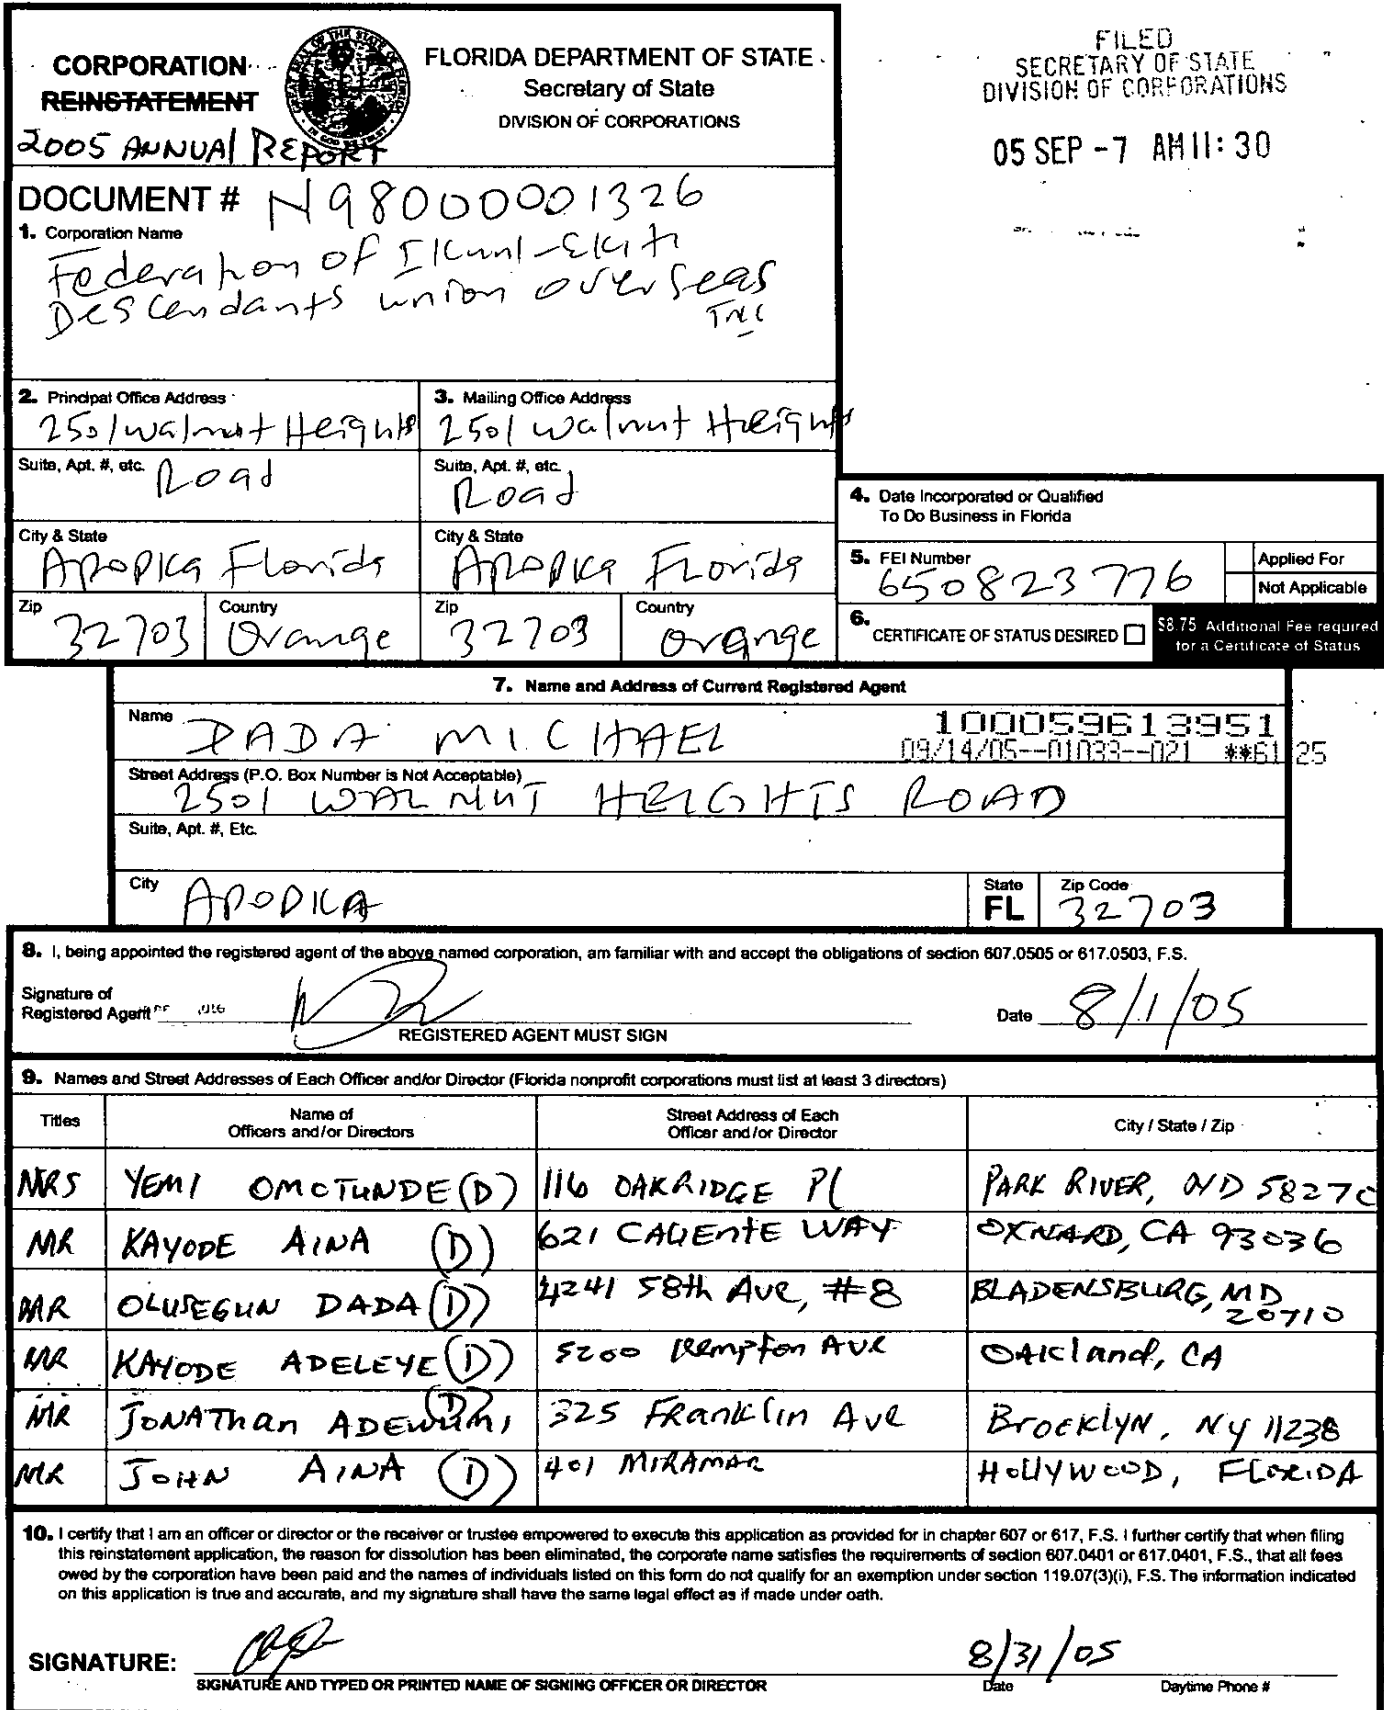 CORPORATION
REINSTATEMENT
2005 ANNUAL REPORT
FLORIDA DEPARTMENT OF STATE
Secretary of State
DIVISION OF CORPORATIONS
FILED
SECRETARY OF STATE
DIVISION OF CORPORATIONS
05 SEP -7 AM 11:30
DOCUMENT # N98000001326
1. Corporation Name
Federation of Ikun-Ekiti
Descendants union overseas
Inc
2. Principal Office Address
2501 walnut Heights
3. Mailing Office Address
2501 walnut Heights
Suite, Apt. #, etc. Road
Suite, Apt. #, etc. Road
City & State
Apopka Florida
City & State
Apopka Florida
Zip 32703 Country Orange
Zip 32703 Country Orange
4. Date Incorporated or Qualified
To Do Business in Florida
5. FEI Number
650823776
Applied For
Not Applicable
6. CERTIFICATE OF STATUS DESIRED
$8.75 Additional Fee required
for a Certificate of Status
7. Name and Address of Current Registered Agent
Name DADA MICHAEL
100059613951
09/14/05--01033--021 **61.25
Street Address (P.O. Box Number is Not Acceptable)
2501 WALNUT HEIGHTS ROAD
Suite, Apt. #, Etc.
City APOPKA
State FL
Zip Code 32703
8. I, being appointed the registered agent of the above named corporation, am familiar with and accept the obligations of section 607.0505 or 617.0503, F.S.
Signature of
Registered Agent
REGISTERED AGENT MUST SIGN
Date 8/1/05
9. Names and Street Addresses of Each Officer and/or Director (Florida nonprofit corporations must list at least 3 directors)
Titles
Name of
Officers and/or Directors
Street Address of Each
Officer and/or Director
City / State / Zip
MRS YEMI OMOTUNDE (D) 116 OAKRIDGE Pl PARK RIVER, ND 58270
MR KAYODE AINA (D) 621 CALIENTE WAY OXNARD, CA 93036
MR OLUSEGUN DADA (D) 4241 58th Ave, #8 BLADENSBURG, MD 20710
MR KAYODE ADELEYE (D) 5200 Kempton Ave Oakland, CA
MR JONAThan ADEWUMI (D) 325 Franklin Ave Brooklyn, NY 11238
MR JOHN AINA (D) 401 MIRAMAR HOLLYWOOD, FLORIDA
10. I certify that I am an officer or director or the receiver or trustee empowered to execute this application as provided for in chapter 607 or 617, F.S. I further certify that when filing
this reinstatement application, the reason for dissolution has been eliminated, the corporate name satisfies the requirements of section 607.0401 or 617.0401, F.S., that all fees
owed by the corporation have been paid and the names of individuals listed on this form do not qualify for an exemption under section 119.07(3)(i), F.S. The information indicated
on this application is true and accurate, and my signature shall have the same legal effect as if made under oath.
SIGNATURE:
8/31/05
SIGNATURE AND TYPED OR PRINTED NAME OF SIGNING OFFICER OR DIRECTOR
Date
Daytime Phone #